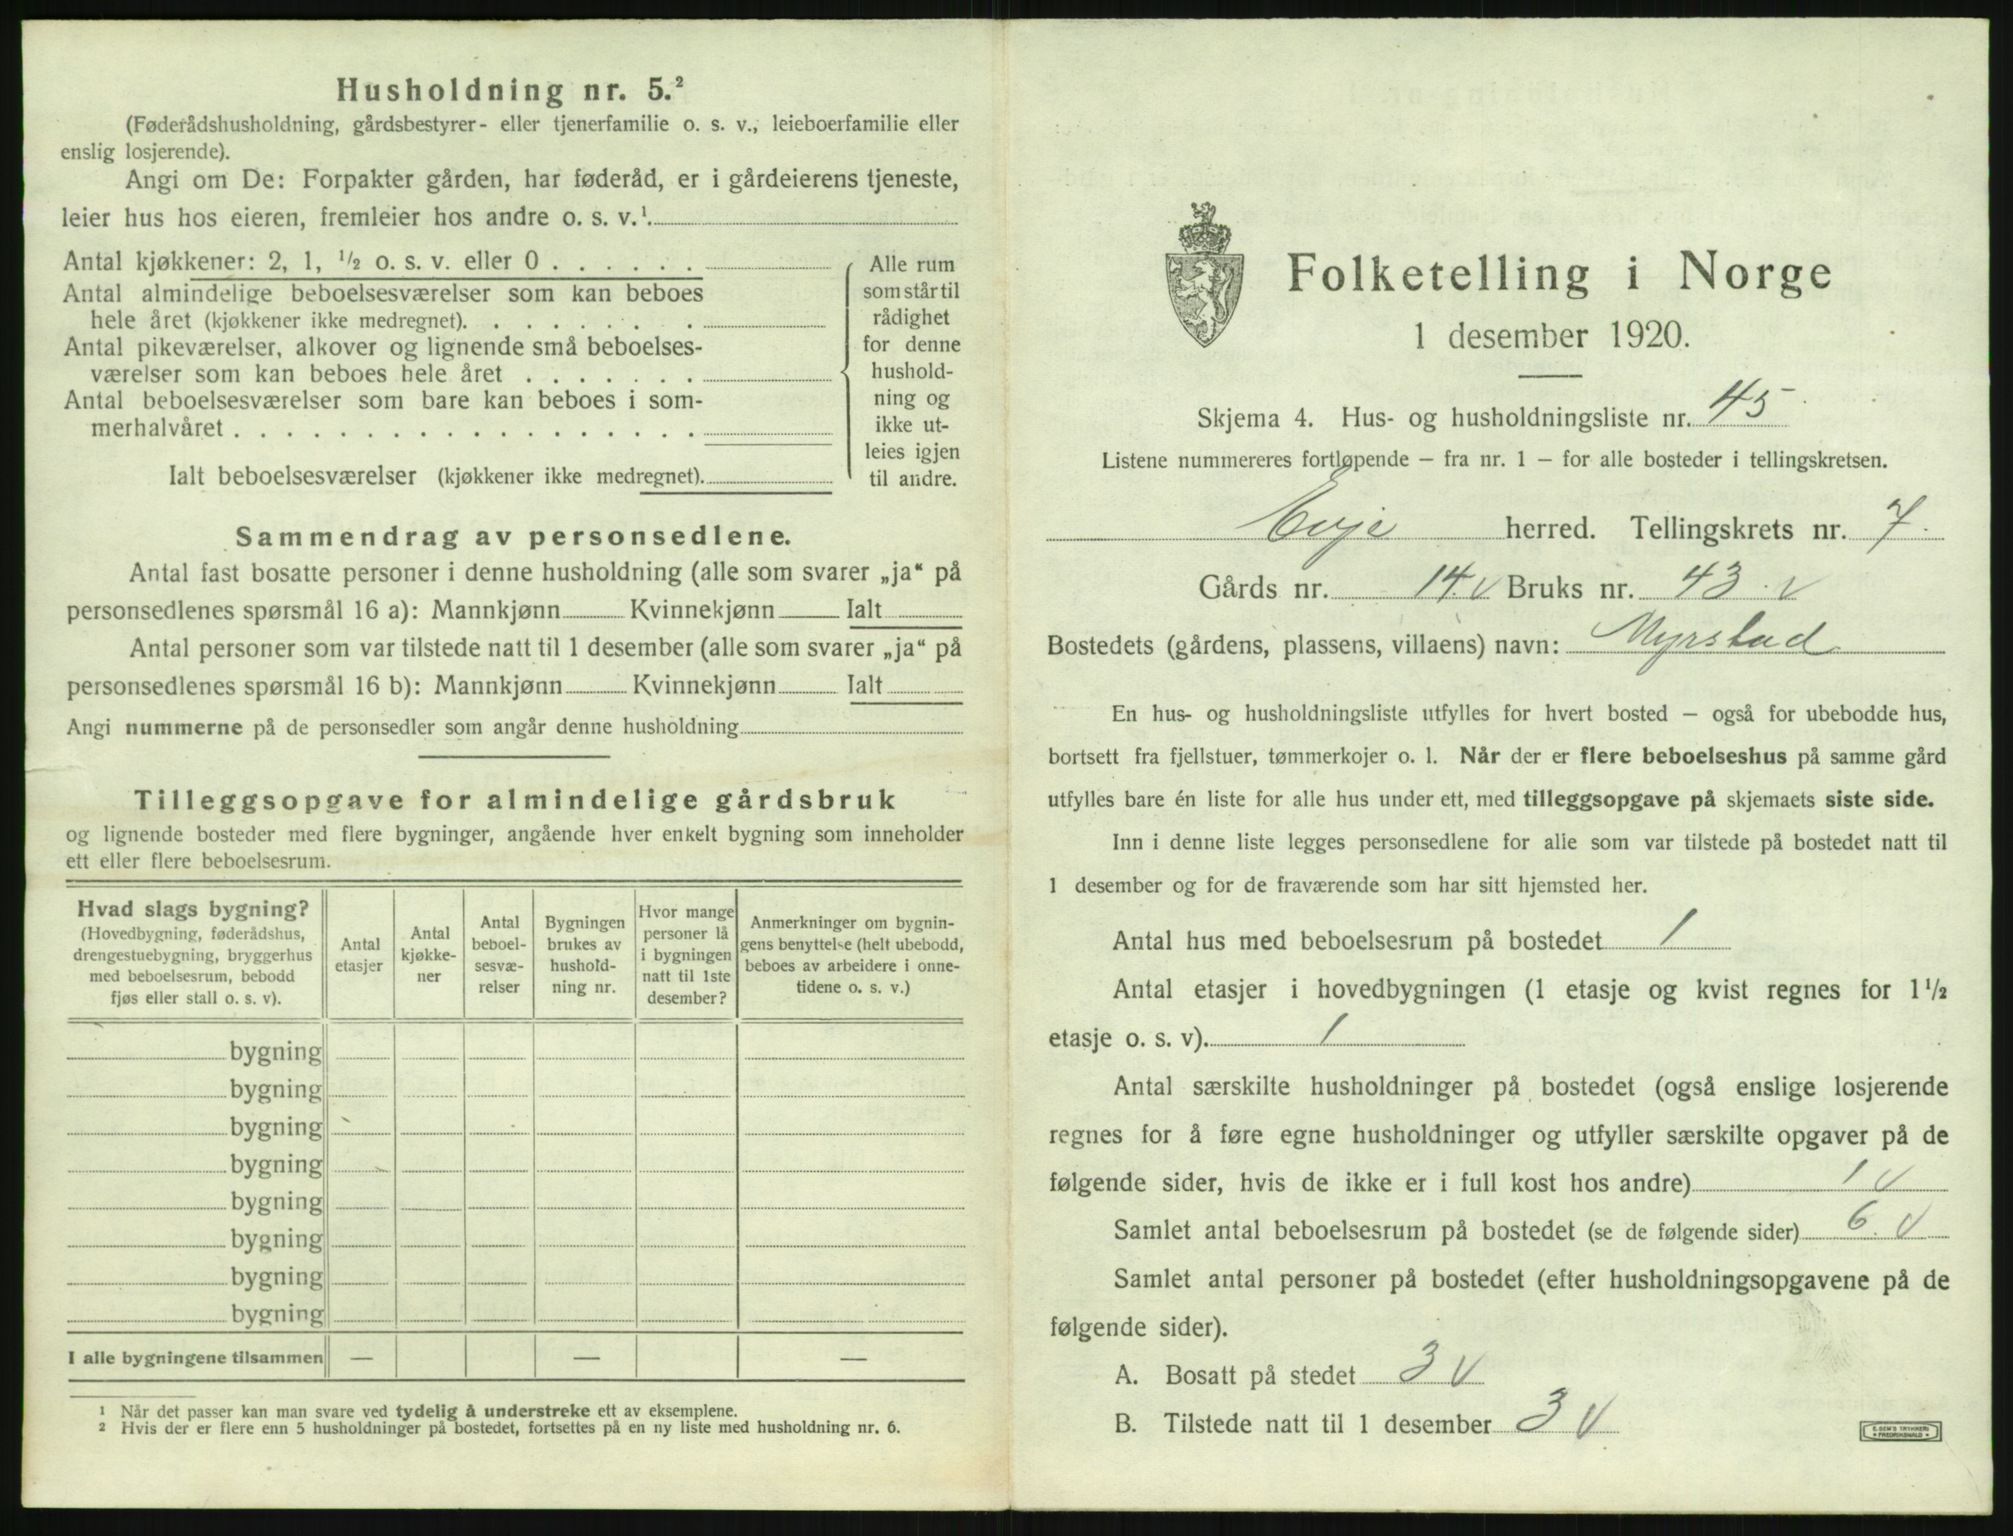 Husholdning nr. 5.²
(Føderådshusholdning, gårdsbestyrer- eller tjenerfamilie o. s. v., leieboerfamilie eller
enslig losjerende).
Angi om De: Forpakter gården, har føderåd, er i gårdeierens tjeneste,
leier hus hos eieren, fremleier hos andre o. s. v.¹.
Antal kjøkkener: 2, 1, ½ o. s. v. eller 0 . . . . . .
Antal almindelige beboelsesværelser som kan beboes
hele året (kjøkkener ikke medregnet). . . . . . . .
Antal pikeværelser, alkover og lignende små beboelses-
værelser som kan beboes hele året . . . . . . .
Antal beboelsesværelser som bare kan beboes i som-
merhalvåret . . . . . . . . . . . . . . . . . .
Ialt beboelsesværelser (kjøkkener ikke medregnet).
Alle rum
som står til
rådighet
for denne
hushold-
ning og
ikke ut-
leies igjen
til andre.
Sammendrag av personsedlene.
Antal fast bosatte personer i denne husholdning (alle som svarer „ja“ på
personsedlenes spørsmål 16 a): Mannkjønn Kvinnekjønn Ialt
Antal personer som var tilstede natt til 1 desember (alle som svarer „ja“ på
personsedlenes spørsmål 16 b): Mannkjønn Kvinnekjønn Ialt
Angi nummerne på de personsedler som angår denne husholdning
Tilleggsopgave for almindelige gårdsbruk
og lignende bosteder med flere bygninger, angående hver enkelt bygning som inneholder
ett eller flere beboelsesrum.
Hvad slags bygning?
(Hovedbygning, føderådshus,
drengestuebygning, bryggerhus
med beboelsesrum, bebodd
fjøs eller stall o. s. v).
Antal
etasjer
Antal
kjøkke-
ner
Antal
beboel-
sesvæ-
relser
Bygningen
brukes av
hushold-
ning nr.
Hvor mange
personer lå
i bygningen
natt til 1ste
desember?
Anmerkninger om bygnin-
gens benyttelse (helt ubebodd,
beboes av arbeidere i onne-
tidene o. s. v.)
bygning
bygning
bygning
bygning
bygning
bygning
bygning
bygning
I alle bygningene tilsammen — — —
¹ Når det passer kan man svare ved tydelig å understreke ett av eksemplene.
² Hvis der er flere enn 5 husholdninger på bostedet, fortsettes på en ny liste med husholdning nr. 6.
Folketelling i Norge
1 desember 1920.
Skjema 4. Hus- og husholdningsliste nr. 45
Listene nummereres fortløpende – fra nr. 1 – for alle bosteder i tellingskretsen.
Evje herred. Tellingskrets nr. 7.
Gårds nr. 14. v Bruks nr. 43. v
Bostedets (gårdens, plassens, villaens) navn: Myrstad
En hus- og husholdningsliste utfylles for hvert bosted – også for ubebodde hus,
bortsett fra fjellstuer, tømmerkojer o. l. Når der er flere beboelseshus på samme gård
utfylles bare én liste for alle hus under ett, med tilleggsopgave på skjemaets siste side.
Inn i denne liste legges personsedlene for alle som var tilstede på bostedet natt til
1 desember og for de fraværende som har sitt hjemsted her.
Antal hus med beboelsesrum på bostedet 1
Antal etasjer i hovedbygningen (1 etasje og kvist regnes for 1½
etasje o. s. v). 1
Antal særskilte husholdninger på bostedet (også enslige losjerende
regnes for å føre egne husholdninger og utfyller særskilte opgaver på de
følgende sider, hvis de ikke er i full kost hos andre) 1 v
Samlet antal beboelsesrum på bostedet (se de følgende sider) 6. v
Samlet antal personer på bostedet (efter husholdningsopgavene på de
følgende sider).
A. Bosatt på stedet 3 v
B. Tilstede natt til 1 desember 3 v
E. SEM'S TRYKKERI
FREDRIKSHALD